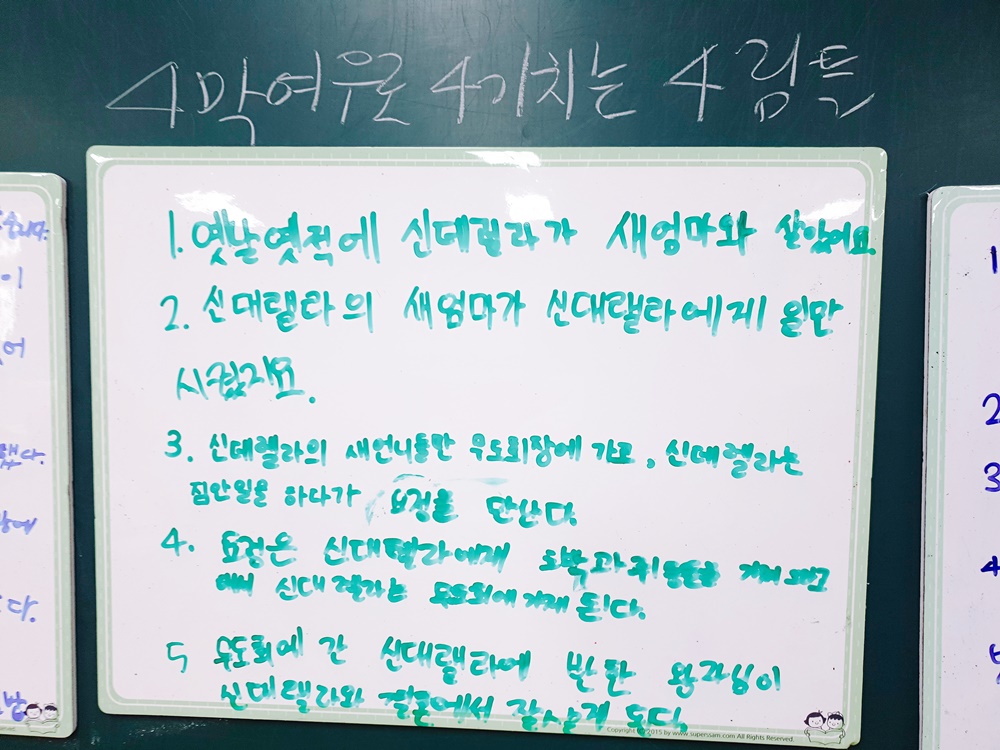 4막여우로 4기치는 4림튼
1. 옛날옛적에 신데렐라가 새엄마와 살았어요.
2. 신대랠라의 새엄마가 신대랠라에게 일만
시켰지요.
3. 신데렐라의 새언니들만 무도회장에 가고, 신데렐라는
집안일을 하다가 요정을 만난다.
4. 요정은 신대렐라에게 호박과 쥐들을
신대렐라는 무도회에 가게 된다.
5 무도회에 간 신대랠라에 반한 왕자님이
신데렐라와 결혼에서 잘살게 된다.
Copyright (c) 2015 by www.superssam.com All Rights Reserved.
습니다.
이
어
했다.
장에
다.
1
2
3
4